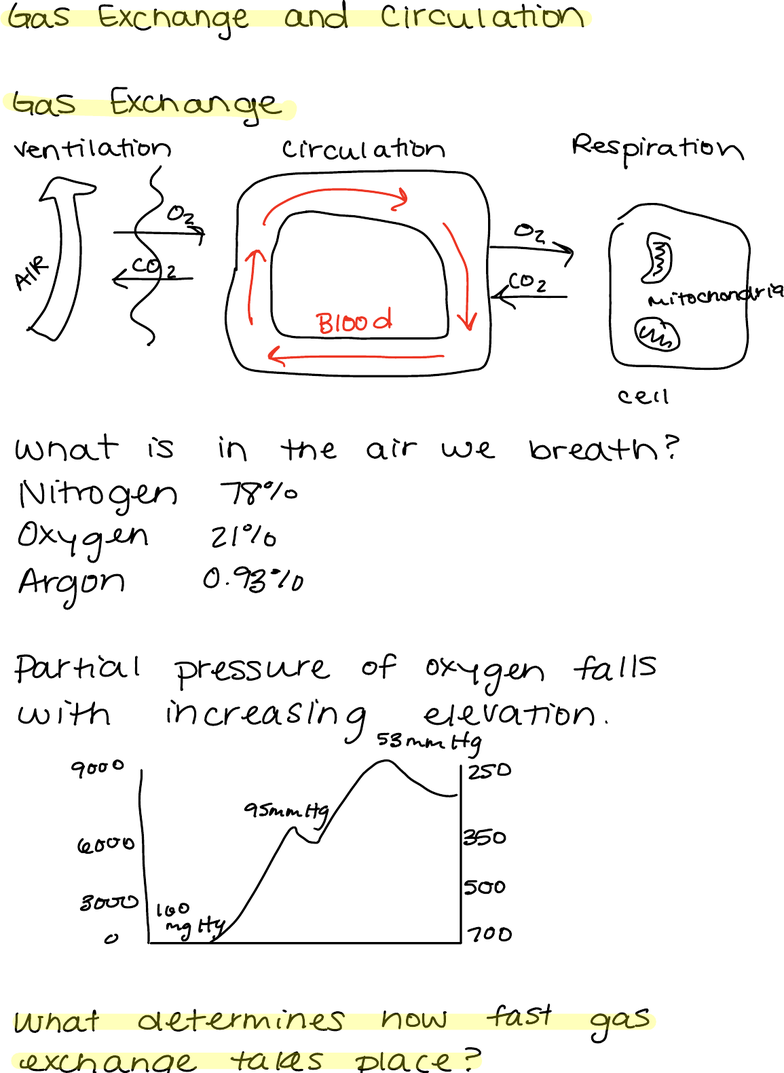 Gas Exchange and Circulation
Gas Exchange
Ventilation
Circulation
Respiration
AIR
O2
CO2
Blood
O2
CO2
mitochondria
cell
What is in the air we breath?
Nitrogen 78%
Oxygen 21%
Argon 0.93%
Partial pressure of oxygen falls
with increasing elevation.
53 mm Hg
9000
250
95mmHg
6000
350
3000
500
160
mg Hg
0
700
What determines how fast gas
exchange takes place?